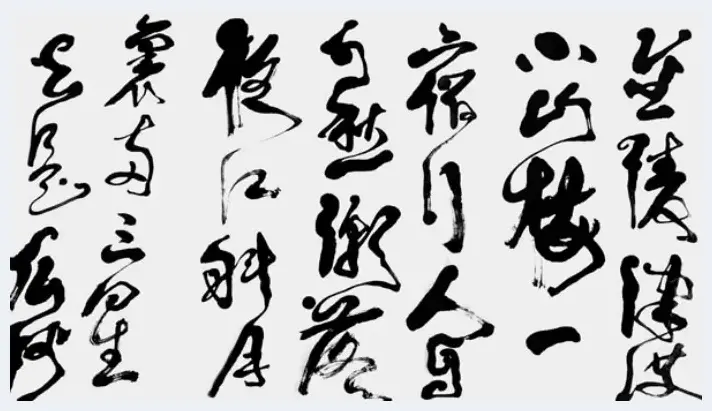 金陵津渡
小山楼一
宿行人自
可愁潮落
夜江斜月
裏两三星
火是瓜洲